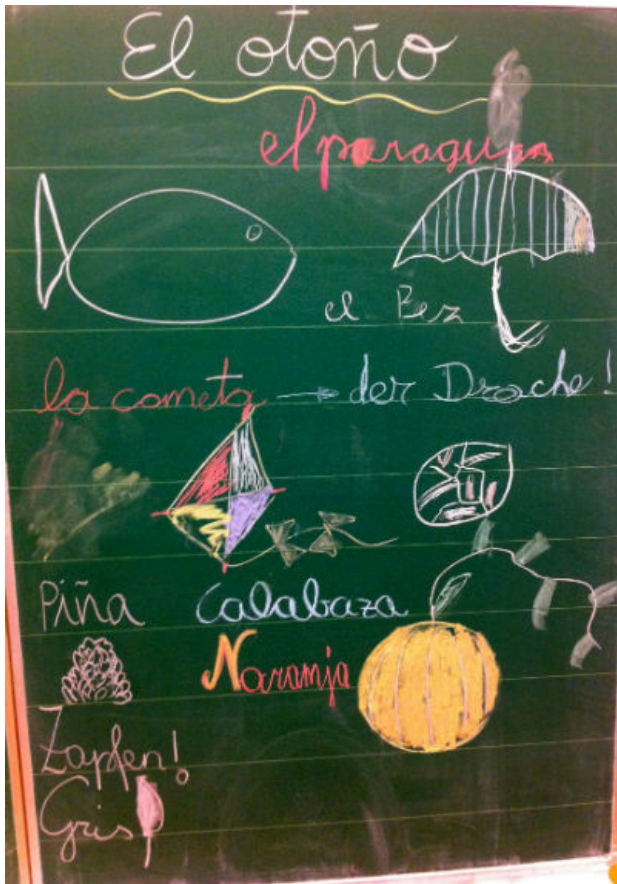 El otoño
el paraguas
el Bez
la cometa → der Drache!
Piña Calabaza
Naranja
Zapfen!
Gris